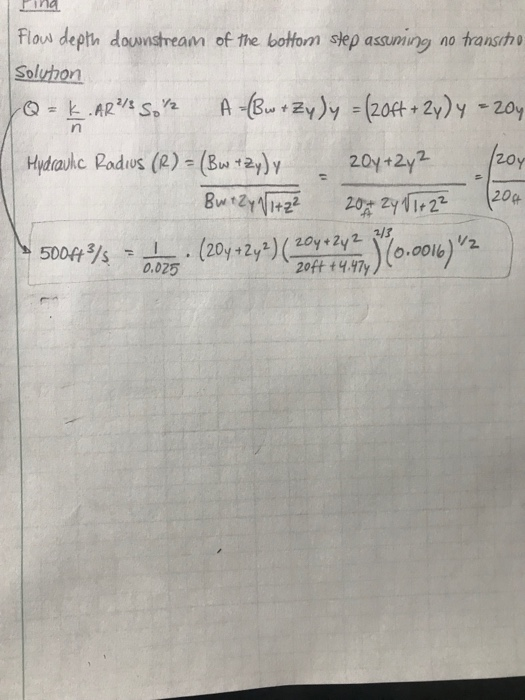 Find
Flow depth downstream of the bottom step assuming no transitio
Solution
Q = k/n · AR^2/3 So^1/2 A = (Bw + Zy)y = (20ft + 2y)y = 20y
Hydraulic Radius (R) = (Bw + Zy)y / Bw + 2y√1+z² = 20y + 2y² / 20ft + 2y√1+2² = (20y / 20ft
500ft³/s = 1/0.025 · (20y + 2y²)(20y + 2y² / 20ft + 4.47y)^2/3 (0.0016)^1/2